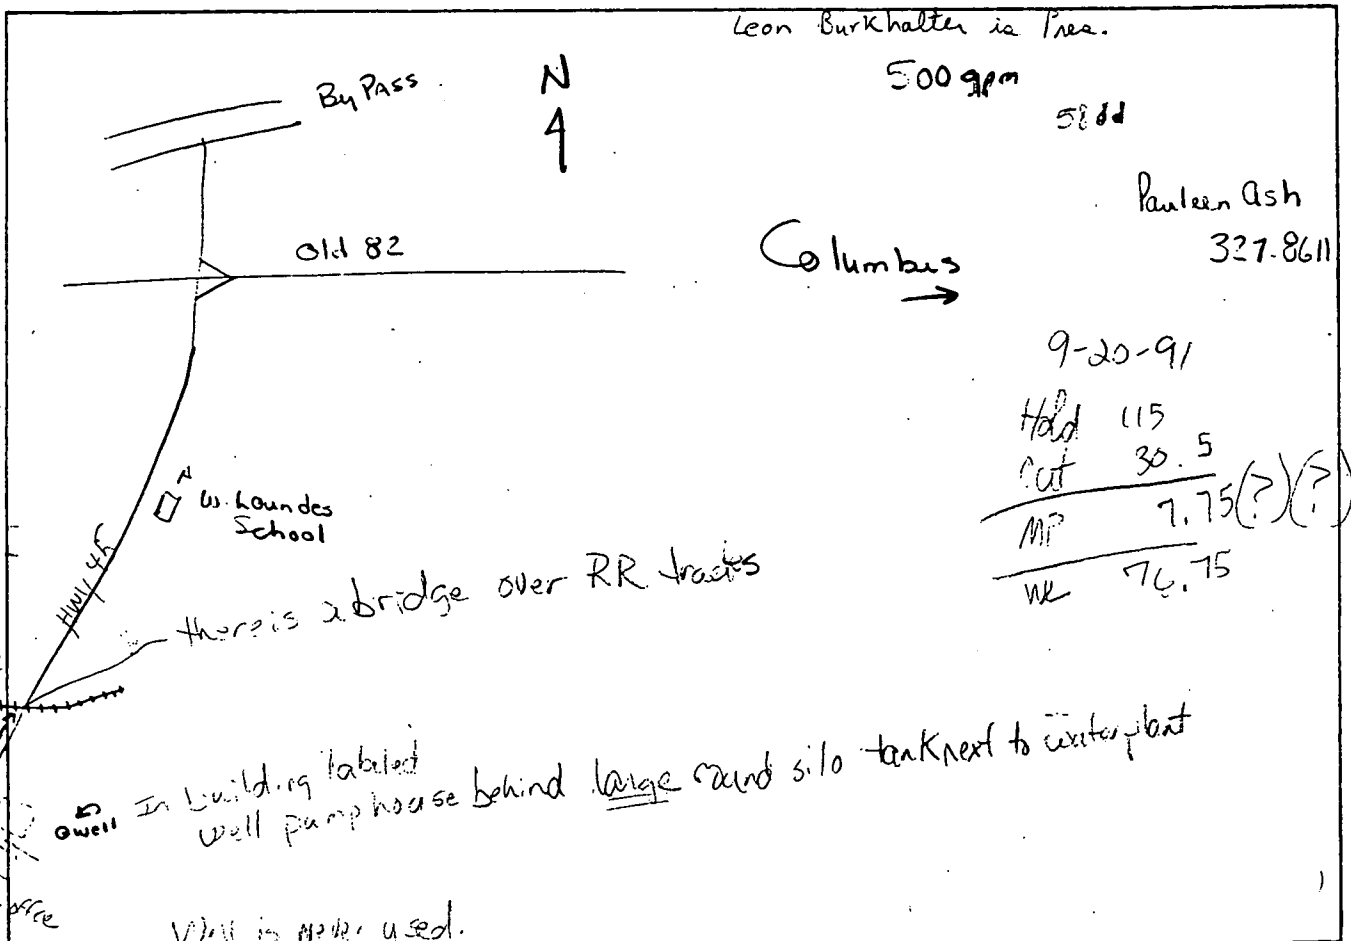 Leon Burkhalter is Pres.
500 gpm
ByPASS
N
Pauleen Ash
327-8611
Old 82
Columbus
9-20-91
Hold 115
Cut 30.5
MP 7.75 (?) (?)
WL 76.75
N
W. Lowndes
School
HWY 45
there is a bridge over RR tracks
In building labeled
well pump house behind large round silo tank next to waterplant
well
office
Well is never used.